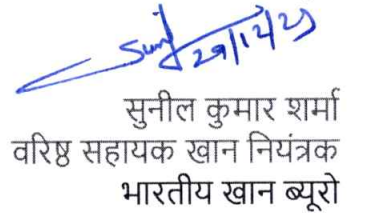 29/12/23
सुनील कुमार शर्मा
वरिष्ठ सहायक खान नियंत्रक
भारतीय खान ब्यूरो